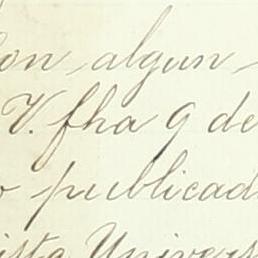 con algun
V. fha 9 de
o publicad
ista Univers